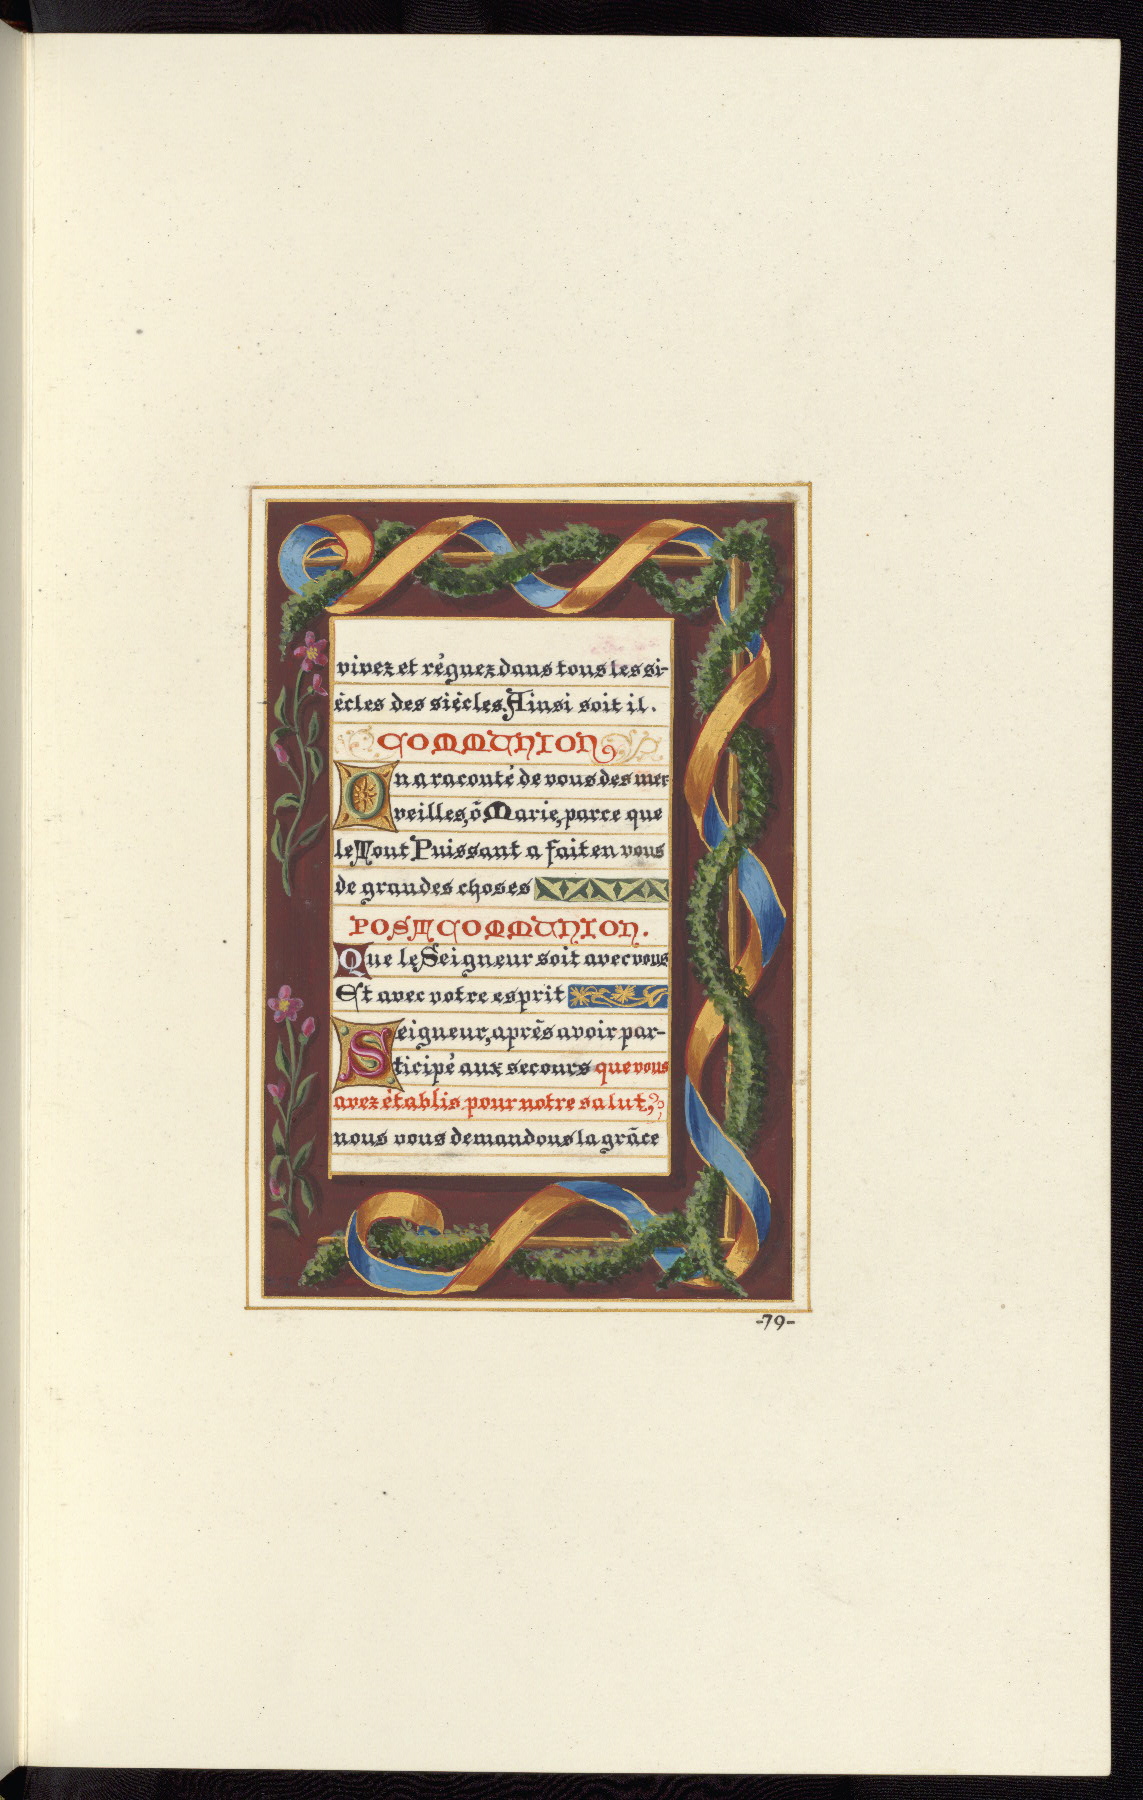 vivez et réguez dans tous les si-
ècles des siècles. Ainsi soit il.
COMMUNION,
On a raconté de vous des mer-
veilles, ô Marie, parce que
le Tout Puissant a fait en vous
de grandes choses
POSTCOMMUNION.
Que le Seigneur soit avec vous
Et avec votre esprit
Seigneur, après avoir par-
ticipé aux secours que vous
avez établis pour notre salut,
nous vous demandons la grâce
-79-